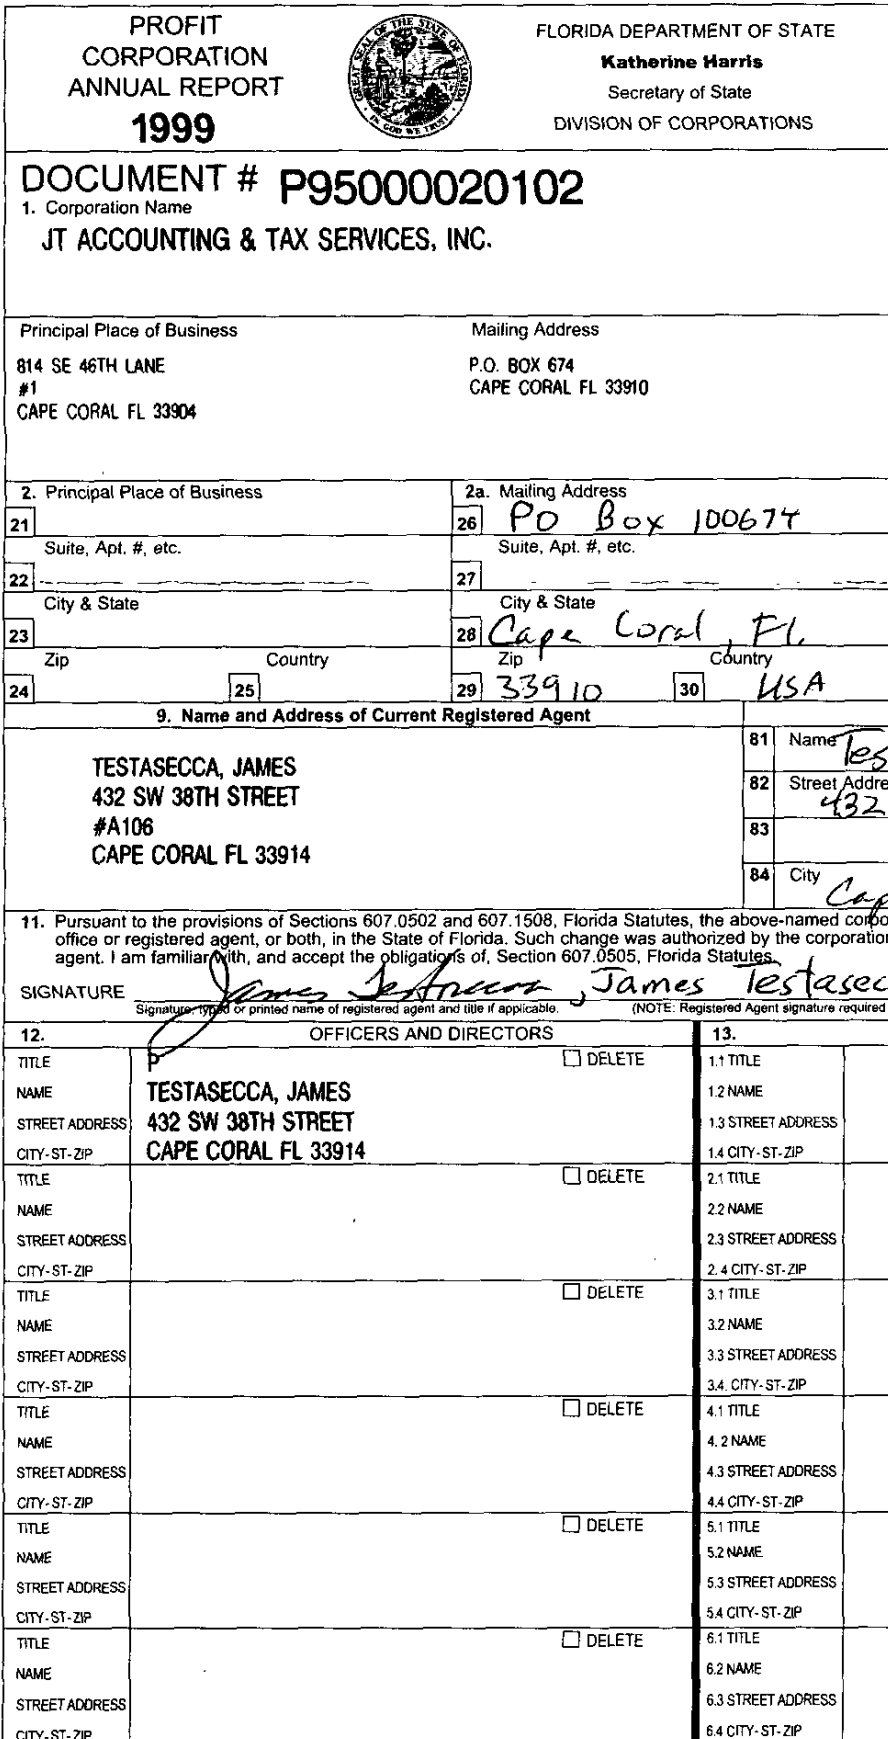 PROFIT
CORPORATION
ANNUAL REPORT
1999
GREAT SEAL OF THE STATE OF FLORIDA
IN GOD WE TRUST
FLORIDA DEPARTMENT OF STATE
Katherine Harris
Secretary of State
DIVISION OF CORPORATIONS
DOCUMENT # P95000020102
1. Corporation Name
JT ACCOUNTING & TAX SERVICES, INC.
Principal Place of Business
814 SE 46TH LANE
#1
CAPE CORAL FL 33904
Mailing Address
P.O. BOX 674
CAPE CORAL FL 33910
2. Principal Place of Business
21
Suite, Apt. #, etc.
22
City & State
23
Zip Country
24 25
2a. Mailing Address
26 PO Box 100674
Suite, Apt. #, etc.
27
City & State
28 Cape Coral, FL
Zip Country
29 33910 30 USA
9. Name and Address of Current Registered Agent
TESTASECCA, JAMES
432 SW 38TH STREET
#A106
CAPE CORAL FL 33914
81 Name Tes
82 Street Addre
432
83
84 City
Cap
11. Pursuant to the provisions of Sections 607.0502 and 607.1508, Florida Statutes, the above-named corpo
office or registered agent, or both, in the State of Florida. Such change was authorized by the corporation
agent. I am familiar with, and accept the obligations of, Section 607.0505, Florida Statutes.
SIGNATURE James Testasecca, James Testasec
Signature, typed or printed name of registered agent and title if applicable. (NOTE: Registered Agent signature required
12. OFFICERS AND DIRECTORS 13.
TITLE P DELETE 1.1 TITLE
NAME TESTASECCA, JAMES 1.2 NAME
STREET ADDRESS 432 SW 38TH STREET 1.3 STREET ADDRESS
CITY-ST-ZIP CAPE CORAL FL 33914 1.4 CITY-ST-ZIP
TITLE DELETE 2.1 TITLE
NAME 2.2 NAME
STREET ADDRESS 2.3 STREET ADDRESS
CITY-ST-ZIP 2.4 CITY-ST-ZIP
TITLE DELETE 3.1 TITLE
NAME 3.2 NAME
STREET ADDRESS 3.3 STREET ADDRESS
CITY-ST-ZIP 3.4. CITY-ST-ZIP
TITLE DELETE 4.1 TITLE
NAME 4.2 NAME
STREET ADDRESS 4.3 STREET ADDRESS
CITY-ST-ZIP 4.4 CITY-ST-ZIP
TITLE DELETE 5.1 TITLE
NAME 5.2 NAME
STREET ADDRESS 5.3 STREET ADDRESS
CITY-ST-ZIP 5.4 CITY-ST-ZIP
TITLE DELETE 6.1 TITLE
NAME 6.2 NAME
STREET ADDRESS 6.3 STREET ADDRESS
CITY-ST-ZIP 6.4 CITY-ST-ZIP